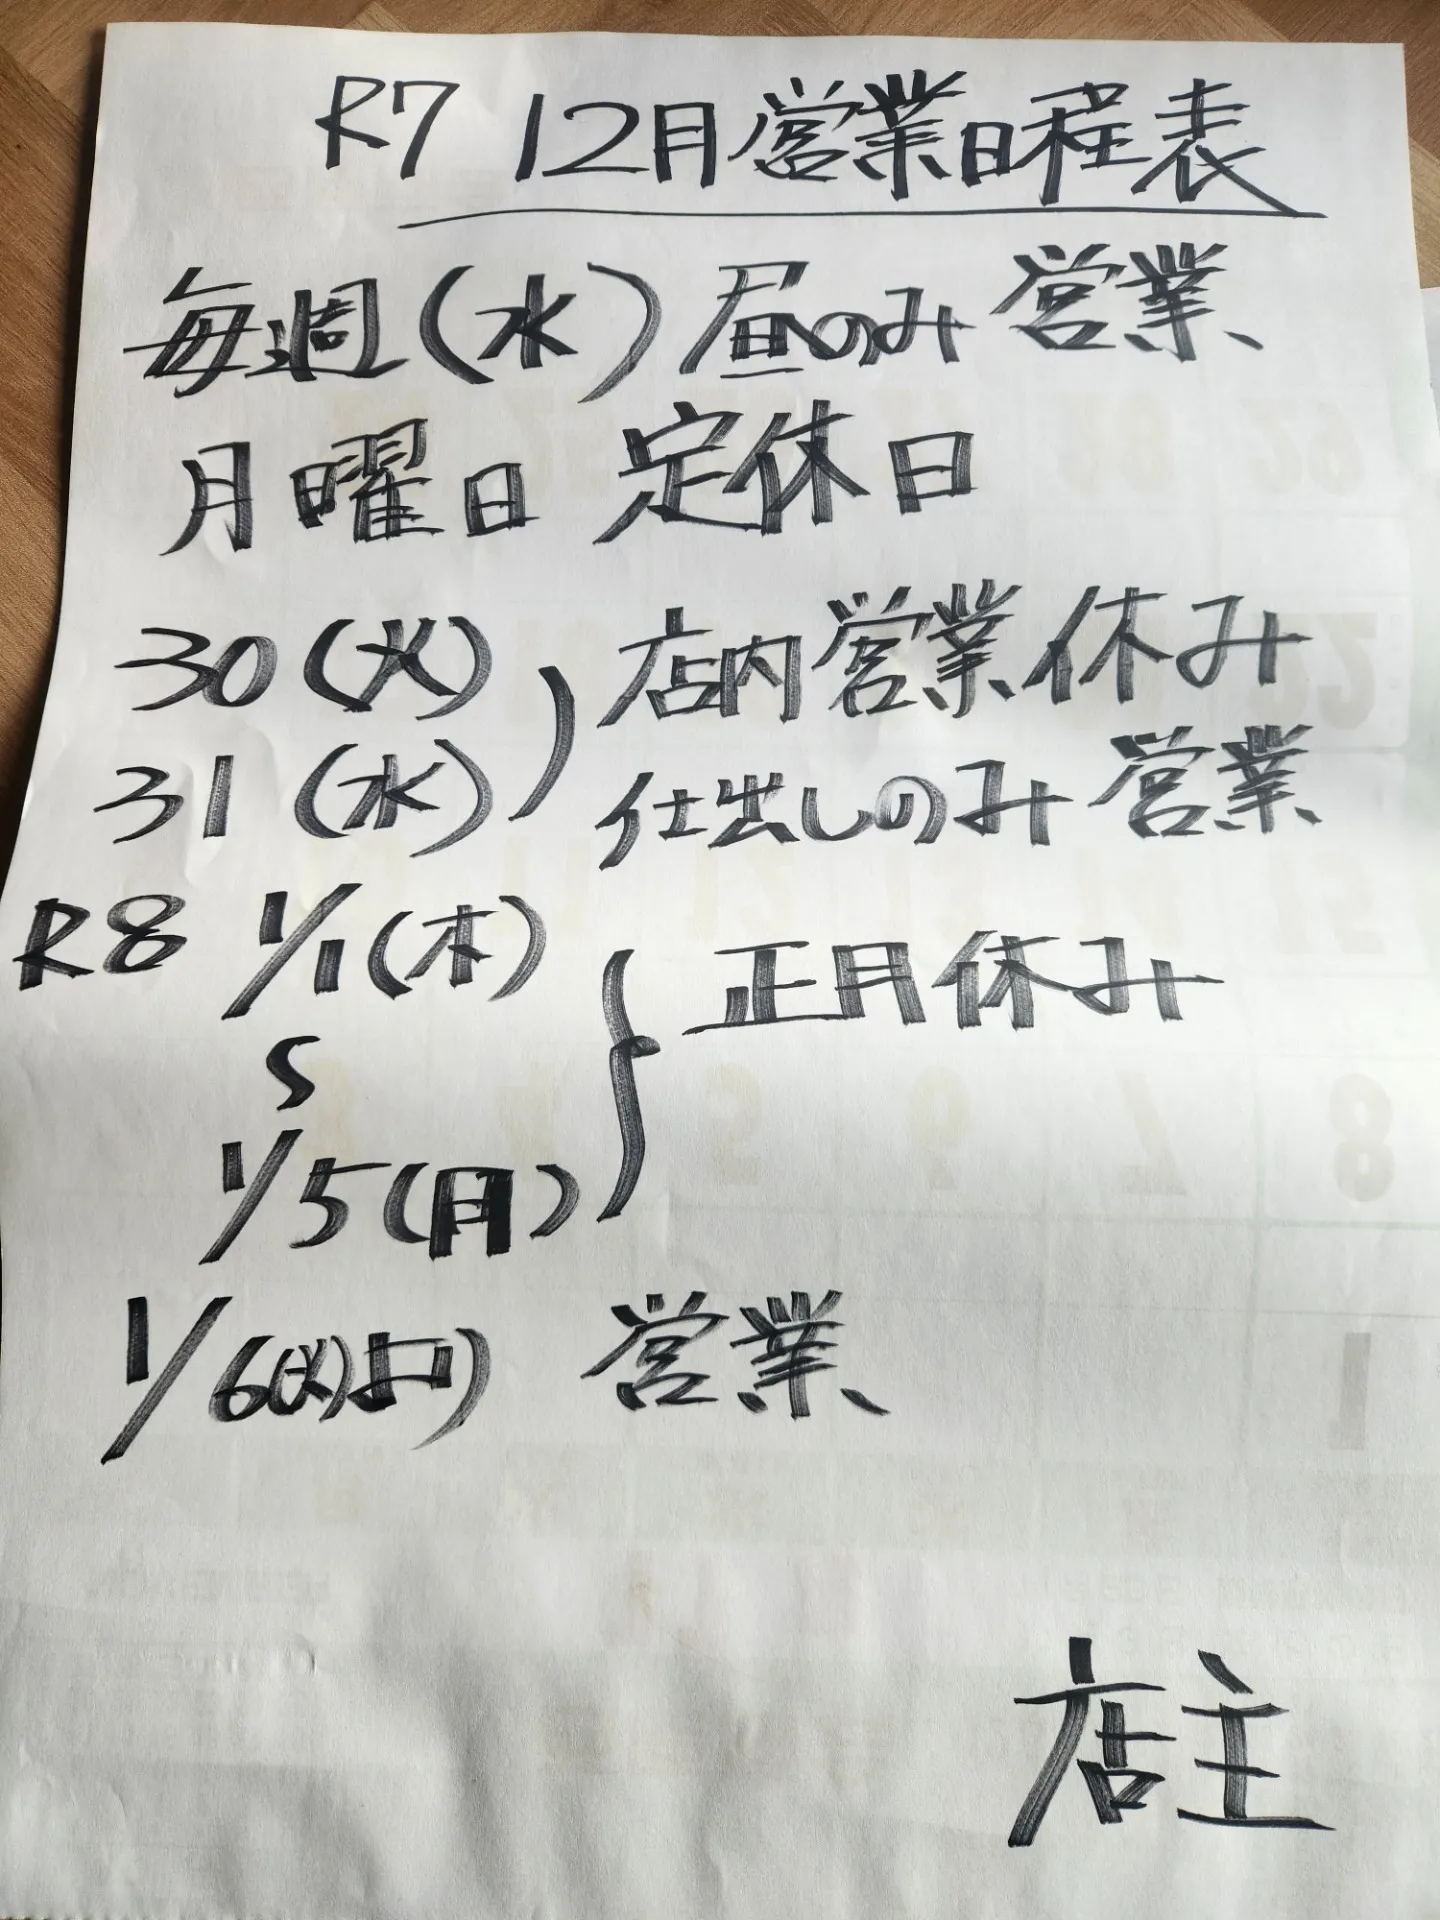 R7 12月営業日程表
毎週(水)昼のみ営業
月曜日 定休日
30(火)
31(水)
店内営業休み
仕出しのみ営業
R8 1/1(木)
〜
1/5(月)
正月休み
1/6(火)より 営業
店主